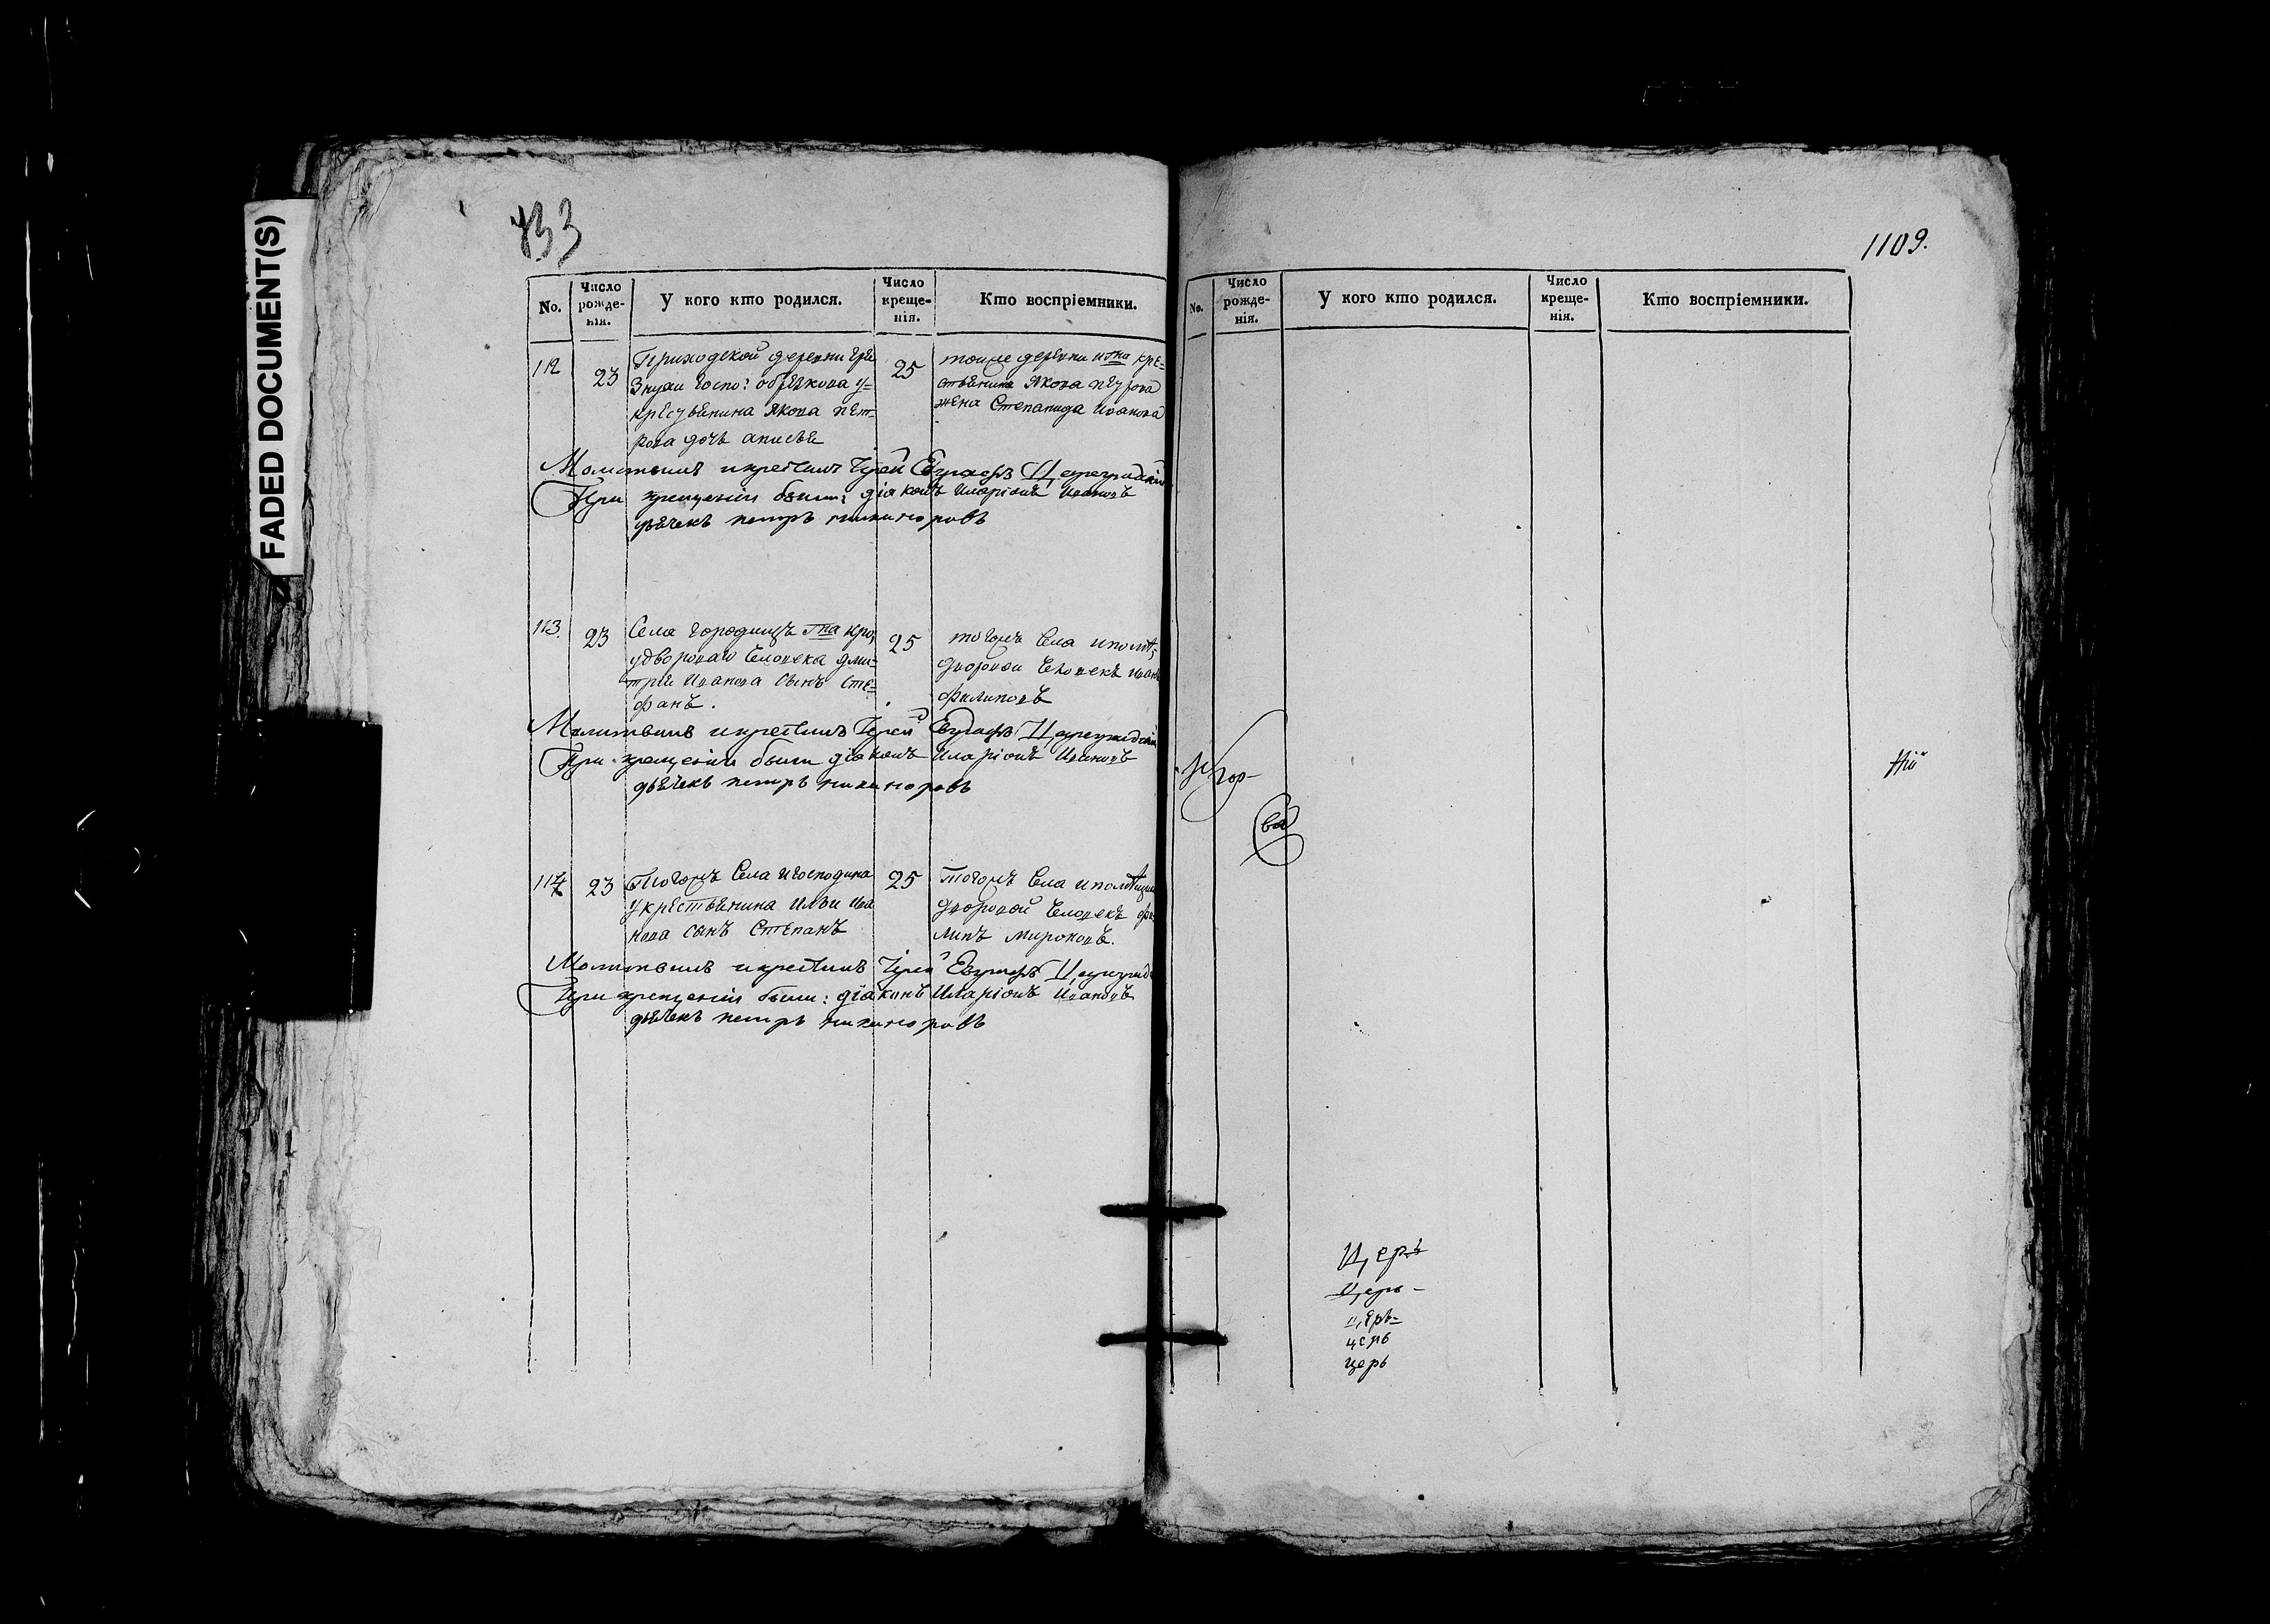 FADED DOCUMENT(S)
733
No.
Число рожде-нія.
У кого кто родился.
Число креще-нія.
Кто воспріемники.
112
23
Приходской деревни Гря
знухи госпо: обрѣзкова у=
крестьянина Якова пет=
рова дочь анисья
25
тоиже деревни и гна кре=
стьянина Якова петрова
жена Степанида Иванова
Молитвилъ и крестилъ Іерей Евграфъ Цареградскій
При крещеніи были: діаконъ Иларіонъ Ивановъ
дьячекъ петръ никаноровъ
113.
23
Села городищъ гна
удвороваго человека дми=
трія Иванова сынъ Сте=
фанъ.
25
тогожъ Села
дворовои человекъ Иванъ
филиповъ
Молитвилъ и крестилъ Іерей Евграфъ Цареградскій
При крещеніи были діаконъ Иларіонъ Ивановъ
дьячекъ петръ никаноровъ
114
23
Тогожъ Села и господина
у крестьянина Ильи Ива
нова сынъ Степанъ
25
Тогожъ Села и помѣщика
дворовой человекъ фи
липъ мироновъ.
Молитвилъ и крестилъ Іерей Евграфъ Цареград
При крещеніи были: діаконъ Иларіонъ Ивановъ
дьячекъ петръ никаноровъ
1109.
No.
Число рожде-нія.
У кого кто родился.
Число креще-нія.
Кто воспріемники.
ва
Церь
Церь -
церь=
церь
церь